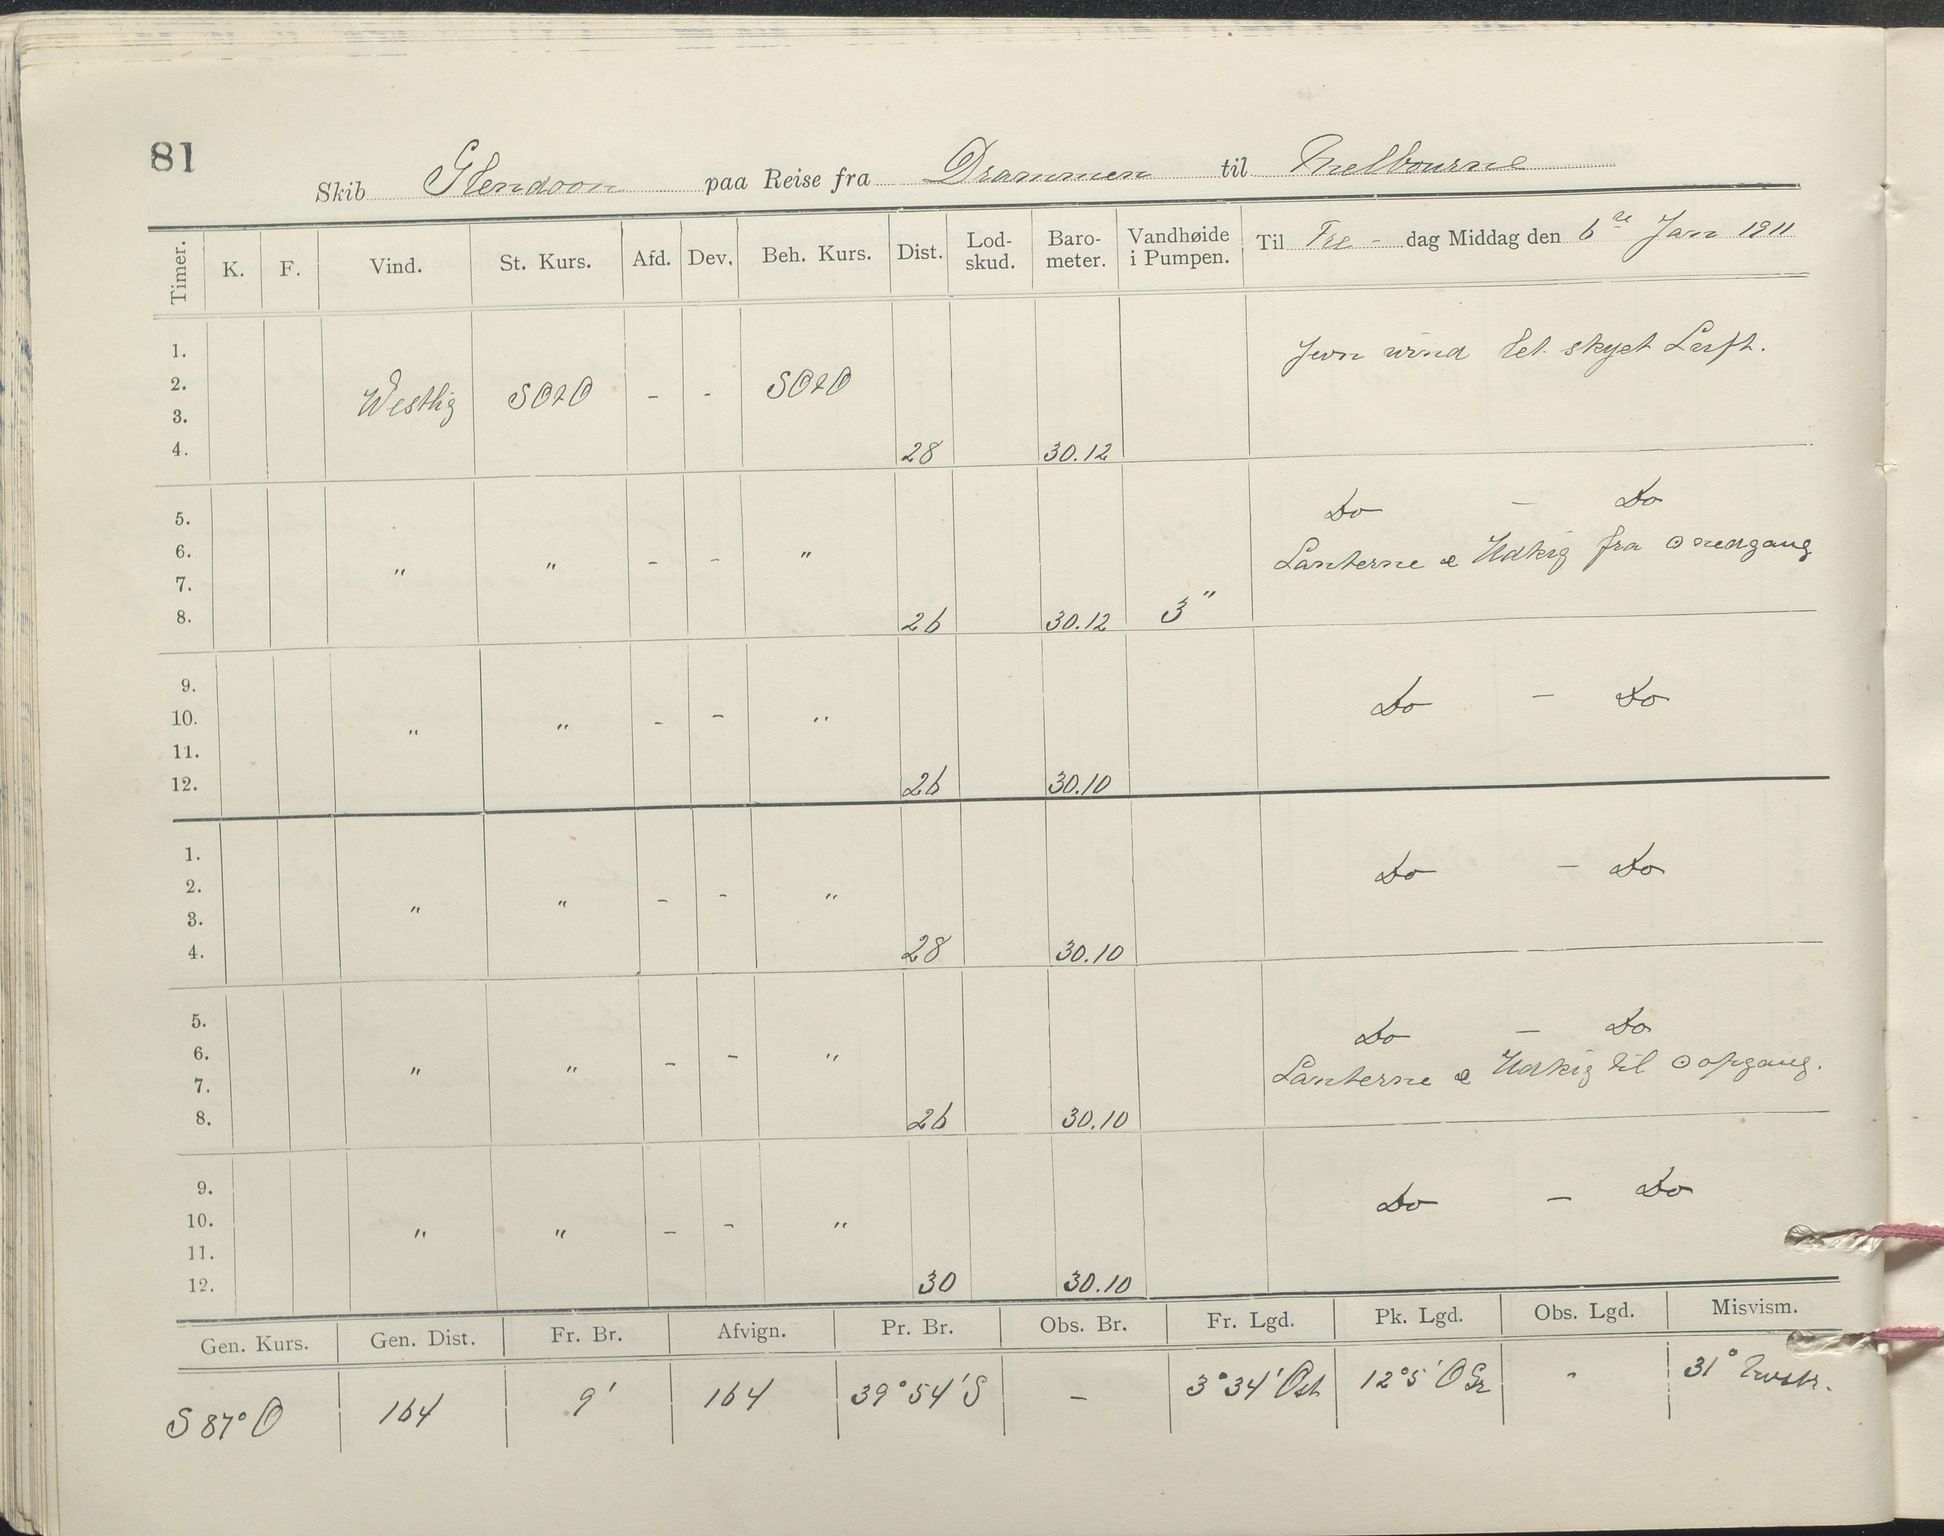 81
Skib Glendoon paa Reise fra Drammen til Melbourne
Timer. K. F. Vind. St. Kurs. Afd. Dev. Beh. Kurs. Dist. Lod-skud. Baro-meter. Vandhøide i Pumpen. Til Fre - dag Middag den 6te Jan 1911
1. Jevn vind let skyet Luft.
2. Westlig SOtO - - SOtO
3.
4. 28 30.12
5. Do - Do
6. " " - - " Lanterne & Udkig fra ⊙ nedgang
7.
8. 26 30.12 3"
9. Do - Do
10. " " - - "
11.
12. 26 30.10
1. Do - Do
2. " " - - "
3.
4. 28 30.10
5. Do - Do
6. " " - - " Lanterne & Udkig til ⊙ opgang.
7.
8. 26 30.10
9. Do - Do
10. " " - - "
11.
12. 30 30.10
Gen. Kurs. Gen. Dist. Fr. Br. Afvign. Pr. Br. Obs. Br. Fr. Lgd. Pk. Lgd. Obs. Lgd. Misvism.
S 87° O 164 9' 164 39° 54' S - 3° 34' Ost 12° 5' O Gr - 31°